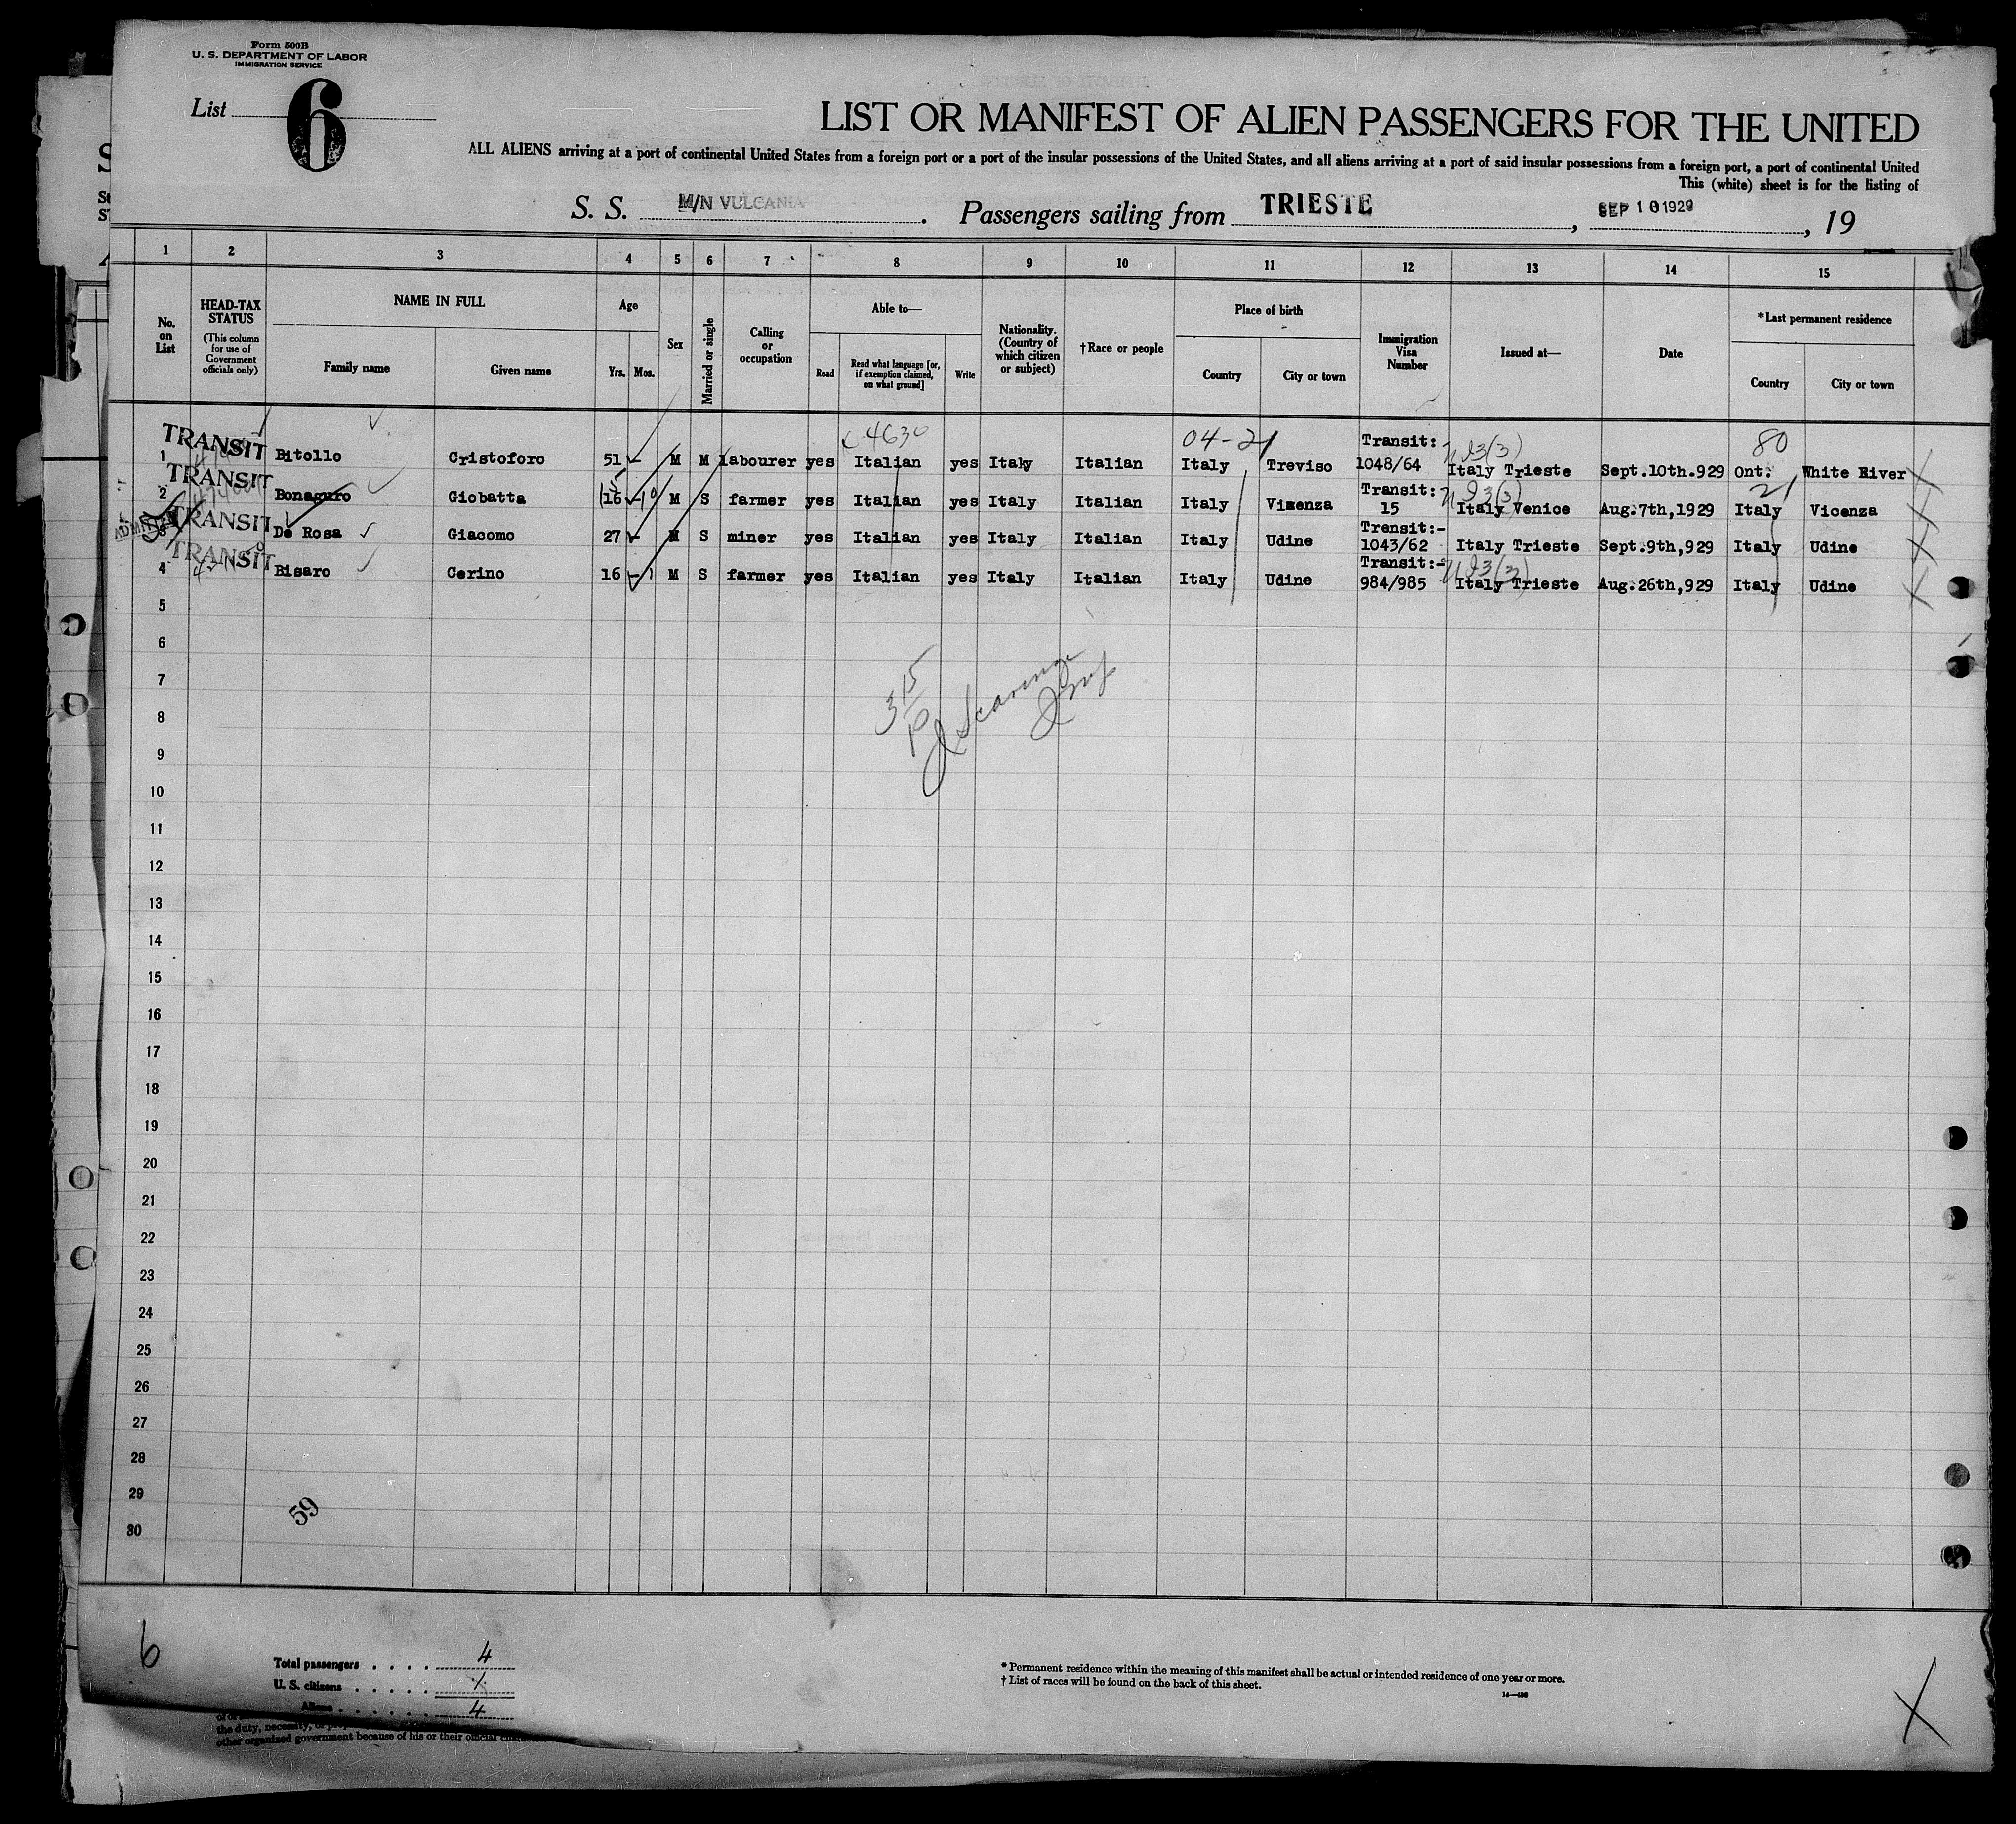 Form 500B
U. S. DEPARTMENT OF LABOR
IMMIGRATION SERVICE
List 6
LIST OR MANIFEST OF ALIEN PASSENGERS FOR THE UNITED
ALL ALIENS arriving at a port of continental United States from a foreign port or a port of the insular possessions of the United States, and all aliens arriving at a port of said insular possessions from a foreign port, a port of continental United
This (white) sheet is for the listing of
S. S. M/N VULCANIA. Passengers sailing from TRIESTE, SEP 10 1929, 19
1 2 3 4 5 6 7 8 9 10 11 12 13 14 15
No. on List
HEAD-TAX STATUS
(This column for use of Government officials only)
NAME IN FULL
Family name
Given name
Age
Yrs. Mos.
Sex
Married or single
Calling or occupation
Able to—
Read
Read what language [or, if exemption claimed, on what ground]
Write
Nationality. (Country of which citizen or subject)
†Race or people
Place of birth
Country
City or town
Immigration Visa Number
Issued at—
Date
*Last permanent residence
Country
City or town
4630 04-21 Transit: 80
1 TRANSIT Bitollo Cristoforo 51 - M M labourer yes Italian yes Italy Italian Italy Treviso 1048/64 Italy Trieste Sept.10th.929 Ont: White River
Transit: 21
2 TRANSIT Bonaguro Giobatta 16 M S farmer yes Italian yes Italy Italian Italy Vizenza 15 Italy Venice Aug.7th,1929 Italy Vicenza
Transit:-
3 ADMITTED TRANSIT De Rosa Giacomo 27 - M S miner yes Italian yes Italy Italian Italy Udine 1043/62 Italy Trieste Sept.9th,929 Italy Udine
Transit:-
4 TRANSIT Bisaro Cerino 16 - M S farmer yes Italian yes Italy Italian Italy Udine 984/985 Italy Trieste Aug.26th,929 Italy Udine
5
6
7
8
9
10
11
12
13
14
15
16
17
18
19
20
21
22
23
24
25
26
27
28
29
30
59
6
Total passengers . . . . 4
U. S. citizens . . . . .
Aliens . . . . . . 4
* Permanent residence within the meaning of this manifest shall be actual or intended residence of one year or more.
† List of races will be found on the back of this sheet.
the duty, necessity, or
other organized government because of his or their official